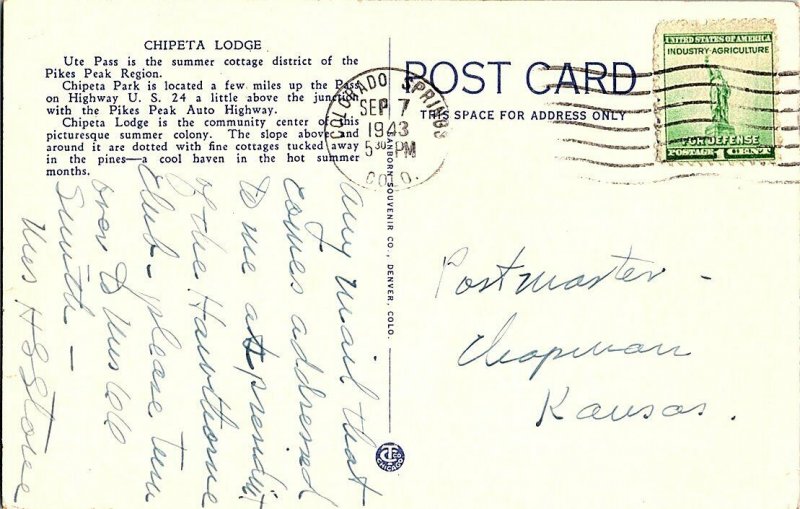 CHIPETA LODGE
Ute Pass is the summer cottage district of the
Pikes Peak Region.
Chipeta Park is located a few miles up the Pass
on Highway U. S. 24 a little above the junction
with the Pikes Peak Auto Highway.
Chipeta Lodge is the community center of a
picturesque summer colony. The slope above and
around it are dotted with fine cottages tucked away
in the pines—a cool haven in the hot summer
months.
POST CARD
THIS SPACE FOR ADDRESS ONLY
COLORADO SPRINGS
SEP 7
1943
5 30 PM
COLO.
UNITED STATES OF AMERICA
INDUSTRY-AGRICULTURE
FOR DEFENSE
POSTAGE 1 CENT
SANBORN SOUVENIR CO., DENVER, COLO.
Any mail that
comes addressed
to me as president
of the Hawthorne
Club - please turn
over to Mrs
Smith -
Mrs H G Stone
Postmaster -
Chapman
Kansas.
CHICAGO